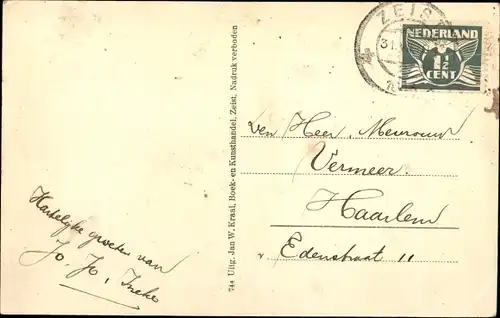 ZEIST
31.
NEDERLAND
1½
CENT
Den Heer, Mevrouw
Vermeer.
Haarlem
Edenstraat 11
74a Uitg. Jan W. Kraal, Boek- en Kunsthandel, Zeist, Nadruk verboden
Hartelijke groeten van
Jo. H, Ineke